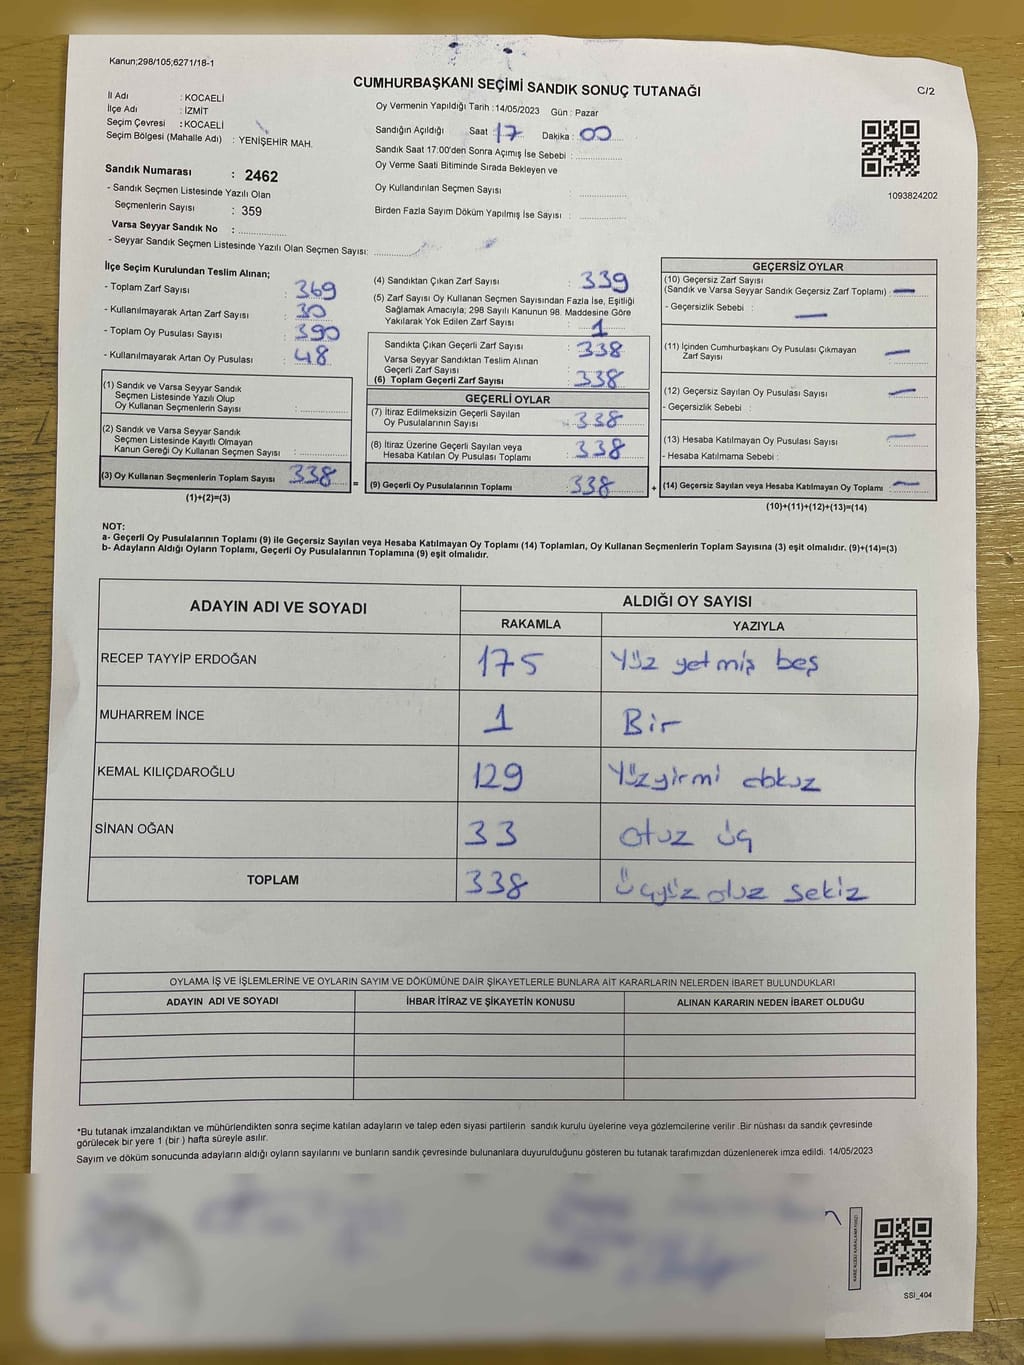 Kanun;298/105;6271/18-1
CUMHURBAŞKANI SEÇİMİ SANDIK SONUÇ TUTANAĞI
C/2
İl Adı : KOCAELİ
İlçe Adı : İZMİT
Seçim Çevresi : KOCAELİ
Seçim Bölgesi (Mahalle Adı) : YENİŞEHİR MAH.
Sandık Numarası : 2462
- Sandık Seçmen Listesinde Yazılı Olan
Seçmenlerin Sayısı : 359
Varsa Seyyar Sandık No : ..............
- Seyyar Sandık Seçmen Listesinde Yazılı Olan Seçmen Sayısı: ..............
Oy Vermenin Yapıldığı Tarih : 14/05/2023 Gün : Pazar
Sandığın Açıldığı Saat 17 Dakika : 00
Sandık Saat 17:00'den Sonra Açımış İse Sebebi : ..............
Oy Verme Saati Bitiminde Sırada Bekleyen ve
Oy Kullandırılan Seçmen Sayısı : ..............
Birden Fazla Sayım Döküm Yapılmış İse Sayısı : ..............
1093824202
İlçe Seçim Kurulundan Teslim Alınan;
- Toplam Zarf Sayısı : 369
- Kullanılmayarak Artan Zarf Sayısı : 30
- Toplam Oy Pusulası Sayısı : 390
- Kullanılmayarak Artan Oy Pusulası : 48
(1) Sandık ve Varsa Seyyar Sandık
Seçmen Listesinde Yazılı Olup
Oy Kullanan Seçmenlerin Sayısı : ..............
(2) Sandık ve Varsa Seyyar Sandık
Seçmen Listesinde Kayıtlı Olmayan
Kanun Gereği Oy Kullanan Seçmen Sayısı : ..............
(3) Oy Kullanan Seçmenlerin Toplam Sayısı 338
(1)+(2)=(3)
=
(4) Sandıktan Çıkan Zarf Sayısı : 339
(5) Zarf Sayısı Oy Kullanan Seçmen Sayısından Fazla İse, Eşitliği
Sağlamak Amacıyla; 298 Sayılı Kanunun 98. Maddesine Göre
Yakılarak Yok Edilen Zarf Sayısı : 1
Sandıkta Çıkan Geçerli Zarf Sayısı : 338
Varsa Seyyar Sandıktan Teslim Alınan
Geçerli Zarf Sayısı :
(6) Toplam Geçerli Zarf Sayısı 338
GEÇERLİ OYLAR
(7) İtiraz Edilmeksizin Geçerli Sayılan
Oy Pusulalarının Sayısı : 338
(8) İtiraz Üzerine Geçerli Sayılan veya
Hesaba Katılan Oy Pusulası Toplamı : 338
(9) Geçerli Oy Pusulalarının Toplamı : 338
+
GEÇERSİZ OYLAR
(10) Geçersiz Zarf Sayısı
(Sandık ve Varsa Seyyar Sandık Geçersiz Zarf Toplamı) : —
- Geçersizlik Sebebi : —
(11) İçinden Cumhurbaşkanı Oy Pusulası Çıkmayan
Zarf Sayısı : —
(12) Geçersiz Sayılan Oy Pusulası Sayısı : —
- Geçersizlik Sebebi :
(13) Hesaba Katılmayan Oy Pusulası Sayısı : —
- Hesaba Katılmama Sebebi :
(14) Geçersiz Sayılan veya Hesaba Katılmayan Oy Toplamı : —
(10)+(11)+(12)+(13)=(14)
NOT:
a- Geçerli Oy Pusulalarının Toplamı (9) ile Geçersiz Sayılan veya Hesaba Katılmayan Oy Toplamı (14) Toplamları, Oy Kullanan Seçmenlerin Toplam Sayısına (3) eşit olmalıdır. (9)+(14)=(3)
b- Adayların Aldığı Oyların Toplamı, Geçerli Oy Pusulalarının Toplamına (9) eşit olmalıdır.
ADAYIN ADI VE SOYADI ALDIĞI OY SAYISI
RAKAMLA YAZIYLA
RECEP TAYYİP ERDOĞAN 175 Yüz yetmiş beş
MUHARREM İNCE 1 Bir
KEMAL KILIÇDAROĞLU 129 Yüzyirmi dokuz
SİNAN OĞAN 33 otuz üç
TOPLAM 338 üçyüz otuz sekiz
OYLAMA İŞ VE İŞLEMLERİNE VE OYLARIN SAYIM VE DÖKÜMÜNE DAİR ŞİKAYETLERLE BUNLARA AİT KARARLARIN NELERDEN İBARET BULUNDUKLARI
ADAYIN ADI VE SOYADI İHBAR İTİRAZ VE ŞİKAYETİN KONUSU ALINAN KARARIN NEDEN İBARET OLDUĞU
*Bu tutanak imzalandıktan ve mühürlendikten sonra seçime katılan adayların ve talep eden siyasi partilerin sandık kurulu üyelerine veya gözlemcilerine verilir .Bir nüshası da sandık çevresinde
görülecek bir yere 1 (bir ) hafta süreyle asılır.
Sayım ve döküm sonucunda adayların aldığı oyların sayılarını ve bunların sandık çevresinde bulunanlara duyurulduğunu gösteren bu tutanak tarafımızdan düzenlenerek imza edildi. 14/05/2023
SSİ_404